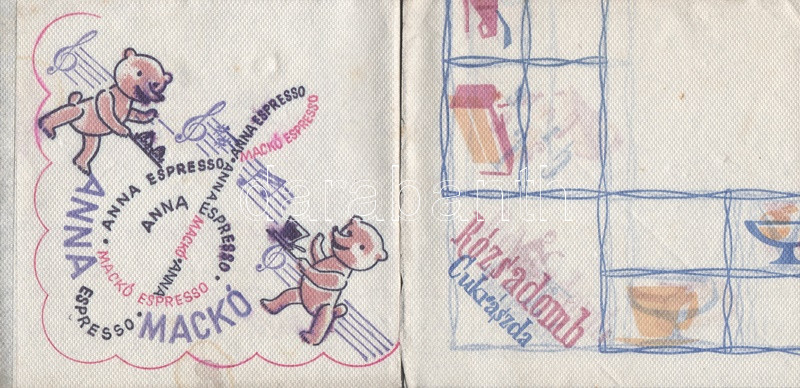 ANNA ESPRESSO • ANNA ESPRESSO
MACKÓ ESPRESSO
ANNA ESPRESSO •
ANNA
MACKÓ • ANNA
• MACKÓ ESPRESSO •
ANNA
ESPRESSO •
MACKÓ
Rózsadomb
Cukrászda
darabanth